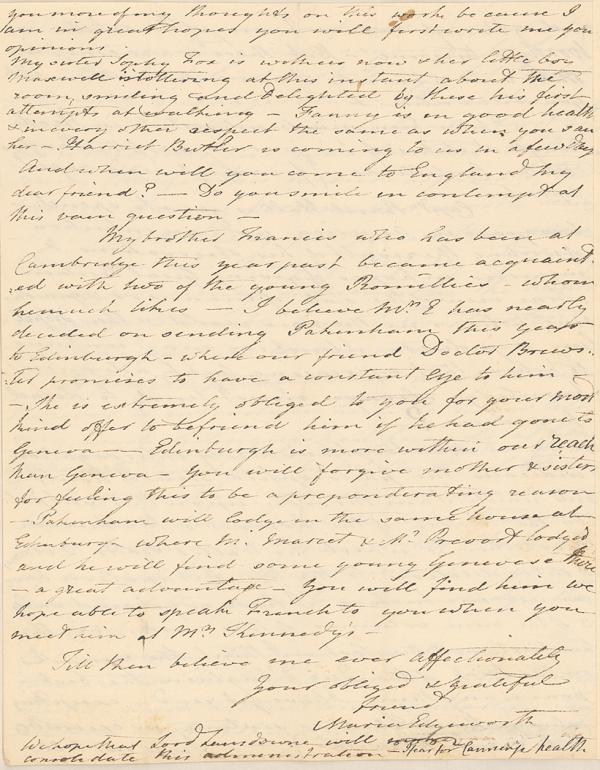 you more of my thoughts on this work because I
am in great hopes you will first write me your
opinions
My sister Sophy Fox is with us now & her little boy
Maxwell is tottering at this instant about the
room, smiling and delighted by these his first
attempts at walking – Fanny is in good health
& in every other respect the same as when you saw
her – Harriet Butler is coming to us in a few days
And when will you come to England my
dear friend? — Do you smile in contempt at
this vain question –
My brother Francis who has been at
Cambridge this year past became acquaint-
-ed with two of the young Romillies – whom
he much likes — I believe Mrs E has nearly
decided on sending Pakenham this year
to Edinburgh – where our friend Doctor Brews-
-ter promises to have a constant eye to him –
– She is extremely obliged to you for your most
kind offer to befriend him if he had gone to
Geneva — Edinburgh is more within our reach
than Geneva – You will forgive mother & sisters
for feeling this to be a preponderating reason
– Pakenham will lodge in the same house at
Edinburgh where Mr. Marcet & Mr. Prevost lodged
and he will find some young Genevese there
– a great advantage – You will find him we
hope able to speak French to you when you
meet him at Mrs Kennedy's –
Till then believe me ever affectionately
Your obliged & grateful
friend
Maria Edgeworth
We hope that Lord Lansdowne will
consolidate this administration – I fear for Cannings health